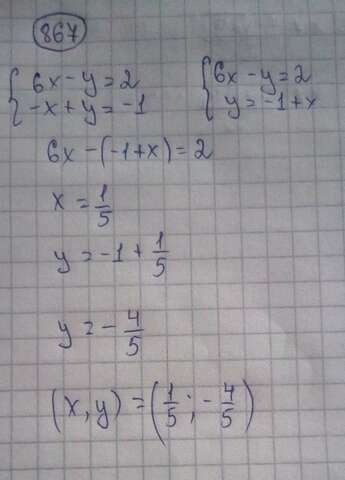 867
{6x - y = 2    {6x - y = 2
{-x + y = -1    {y = -1 + x
6x - (-1 + x) = 2
x = 1/5
y = -1 + 1/5
y = - 4/5
(x, y) = (1/5 ; - 4/5)